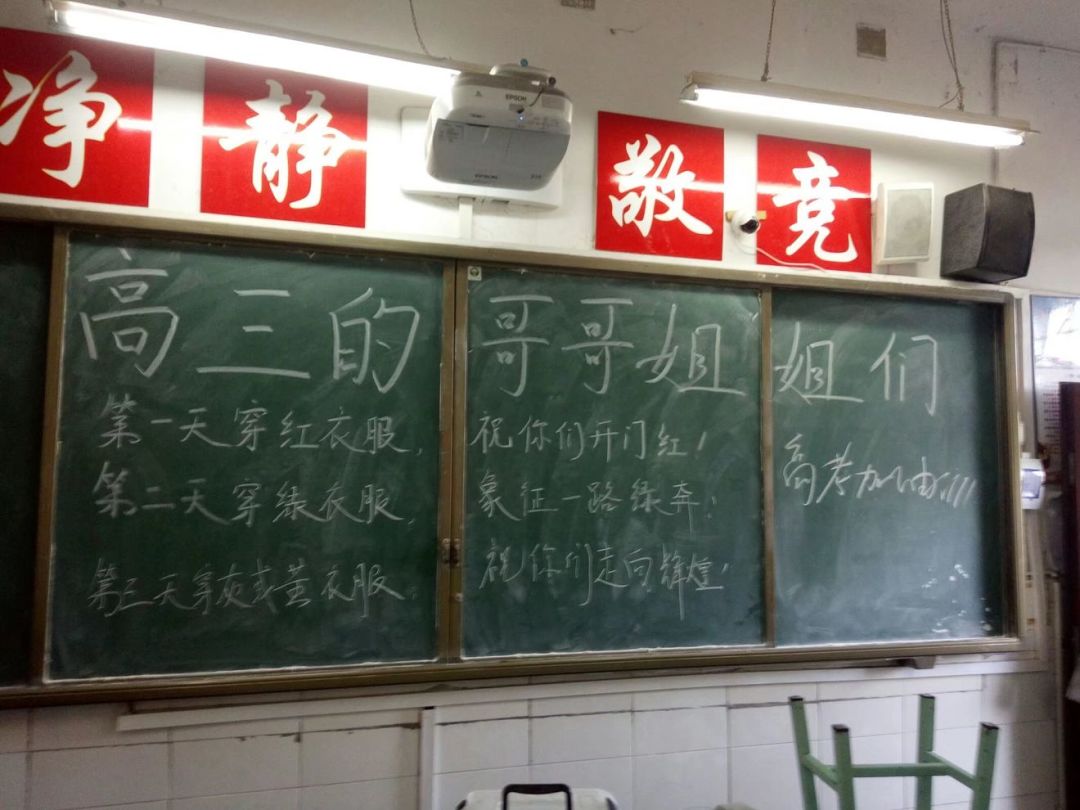 净 静 敬 竞
EPSON
EPSON
高三的哥哥姐姐们
第一天穿红衣服,祝你们开门红!
第二天穿绿衣服,象征一路绿奔!
第三天穿灰或黄衣服,祝你们走向辉煌!
高考加油!!!!